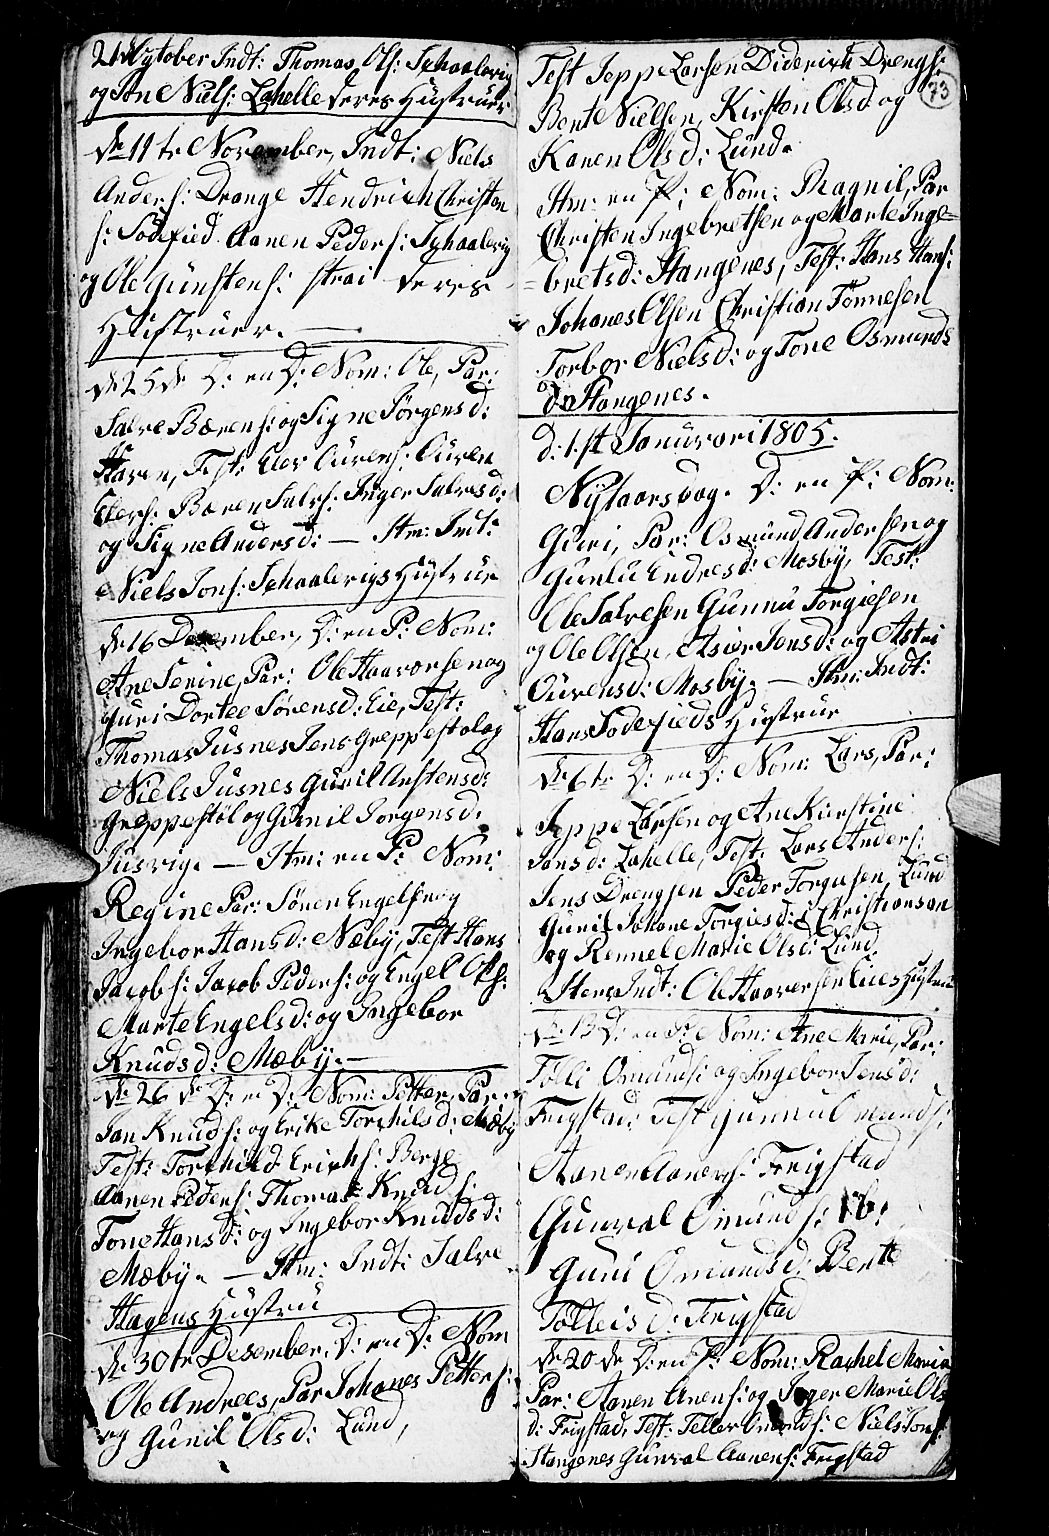 21 October Indt: Thomas Ols: Schaalevig
og Jon Niels: Lahelle deres Hustruer
dn 11te November, Indt: Niels
Anders: Drange Hendrich Christen
s: Sodefied Aanen Peders: Schaalevig
og Ole Gunstens: Strai deres
Hustruer. —
dn 25de D: en D: Nom: Ole, Par:
Salve Bærens: og Signe Jørgensd:
Haven, Test: Elev Ourens: Ouren
Elevs: Bæren Salvs: Inger Salvesd:
og Signe Andersd: — Itm: Indt:
Niels Jons: Schaalevigs Hustrue
dn 16 Desember, D: en P: Nom:
Ane Serine, Par: Ole Haavorsen og
Guri Dortee Sørensd: Eie, Test:
Thomas Jusnes Jens Greppestol og
Niels Jusnes Gunil Anstensd:
Greppestøl og Gunil Jorgensd.
Jusvig. — Itm: en P: Nom:
Regine Par: Sønen Engelsen og
Ingebor Hansd: Mæby, Test Hans
Jacobs: Jacob Peders: og Engel Ols:
Marte Engelsd: og Ingebor
Knudsd: Mæby. —
dn 26 de D: en D: Nom: Petter, Par:
Jan Knuds: og Erike Torkilsd: Mæby
Test: Torkild Erichs: Berge
Aanen Peders: Thomas Knuds:
Tone Hansd: og Ingebor Knudsd:
Mæby. — Itm: Indt: Salve
Hagens Hustru
dn 30te Desember, D: en D: Nom
Ole Andrees, Par Johanes Petters:
og Gunil Olsd: Lund,
73
Test Jeppe Larsen Diderich Drengs:
Bent Nielsen, Kirsten Olsd og
Karen Olsd: Lund.
Itm: en P: Nom: Ragnil, Par
Christen Ingebretsen og Marte Inge=
=bretsd: Stangenes, Test: Hans Hans:
Johanes Olsen Christian Tønnesen
Torbor Nielsd: og Tone Osmunds
d: Stangenes.
D: 1st Januvari 1805.
Nytaarsdag. D: en P: Nom:
Guri, Par: Osmund Andersen og
Gunlu Endresd: Mosby, Test:
Ole Salvesen Gunnu Torgiesen
og Ole Olsen, Asier Jonsd: og Astri
Ourensd: Mosby. — Itm: Indt:
Hans Sodefieds Hustrue
dn 6te D: en D: Nom: Lars, Par:
Jeppe Larsen og Ane Kirstine
Jansd: Lahelle, Test: Lars Anders:
Jens Drengsen Peder Torgusen Lund
Gunil Johane Torgiesd: Christiansan
og Rennel Marie Olsd: Lund.
Item Indt: Ole Haaversen Eies Hustrue
dn 13 D: en P: Nom: Ane Marie, Par:
Tolli Omunds: og Ingebor Jensd:
Frigstad: Test Gunnu Omunds:
Aanen Aanens: Frigstad
Gunval Omunds: ib:
Guni Omundsd: Bente
Tolleisd: Frigstad
dn 20de D: en P: Nom: Rachel Marie
Par: Aanen Anens: og Inger Marie Ols
d: Frigstad, Test: Teller Omunds: Niels Jons:
Stangenes Gunval Aanens: Frigstad